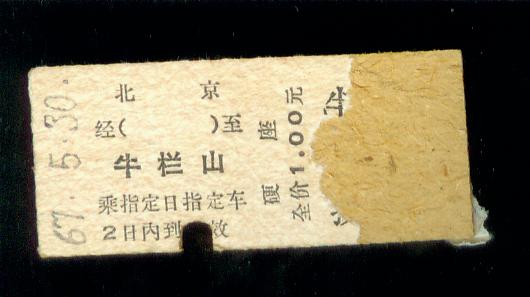 67.5.30.
北京
经( )至
牛栏山
乘指定日指定车
2日内到 效
硬座
全价1.00元